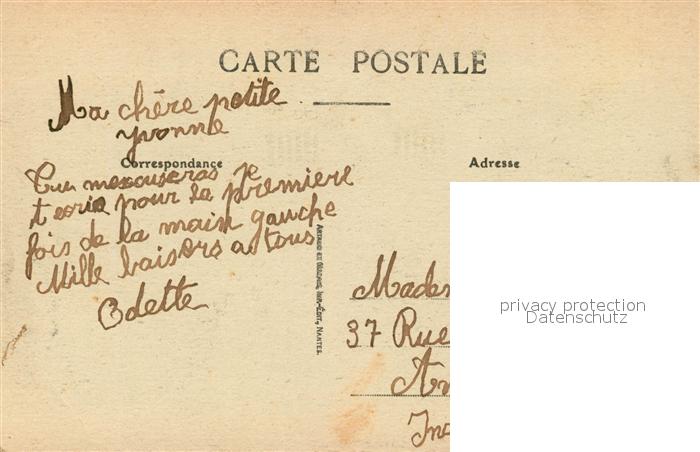 CARTE POSTALE
Ma chère petite
yvonne
Correspondance
Adresse
Tu mexcuseras je
t ecris pour la premiere
fois de la main gauche
Mille baisers a tous
Odette
ARTAUD ET NOZAIS, IMP.-ÉDIT., NANTES.
37 Rue
privacy protection
Datenschutz